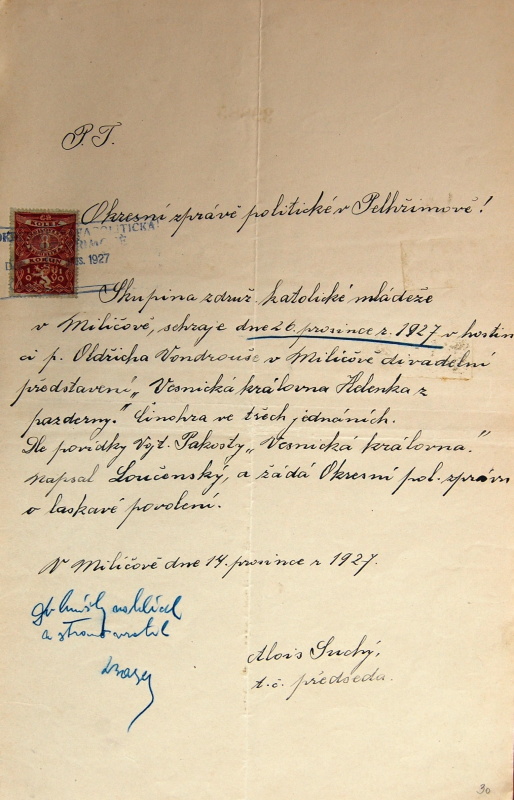 P. T.
Okresní zprávě politické v Pelhřimově!
POLITICKÁ
1927
Skupina združ. katolické mládeže
v Miličově, sehraje dne 26. prosince r. 1927 v hostin
ci p. Oldřicha Vondrouše v Miličově divadelní
představení „Vesnická královna Helenka z
pazderny." Činohra ve třech jednáních.
Dle povídky Vojt. Pakosty „Vesnická královna."
napsal Loučenský, a žádá Okresní pol. zprávu
o laskavé povolení.
V Miličově dne 14. prosince r 1927.
a
Alois Suchý,
t. č. předseda.
30